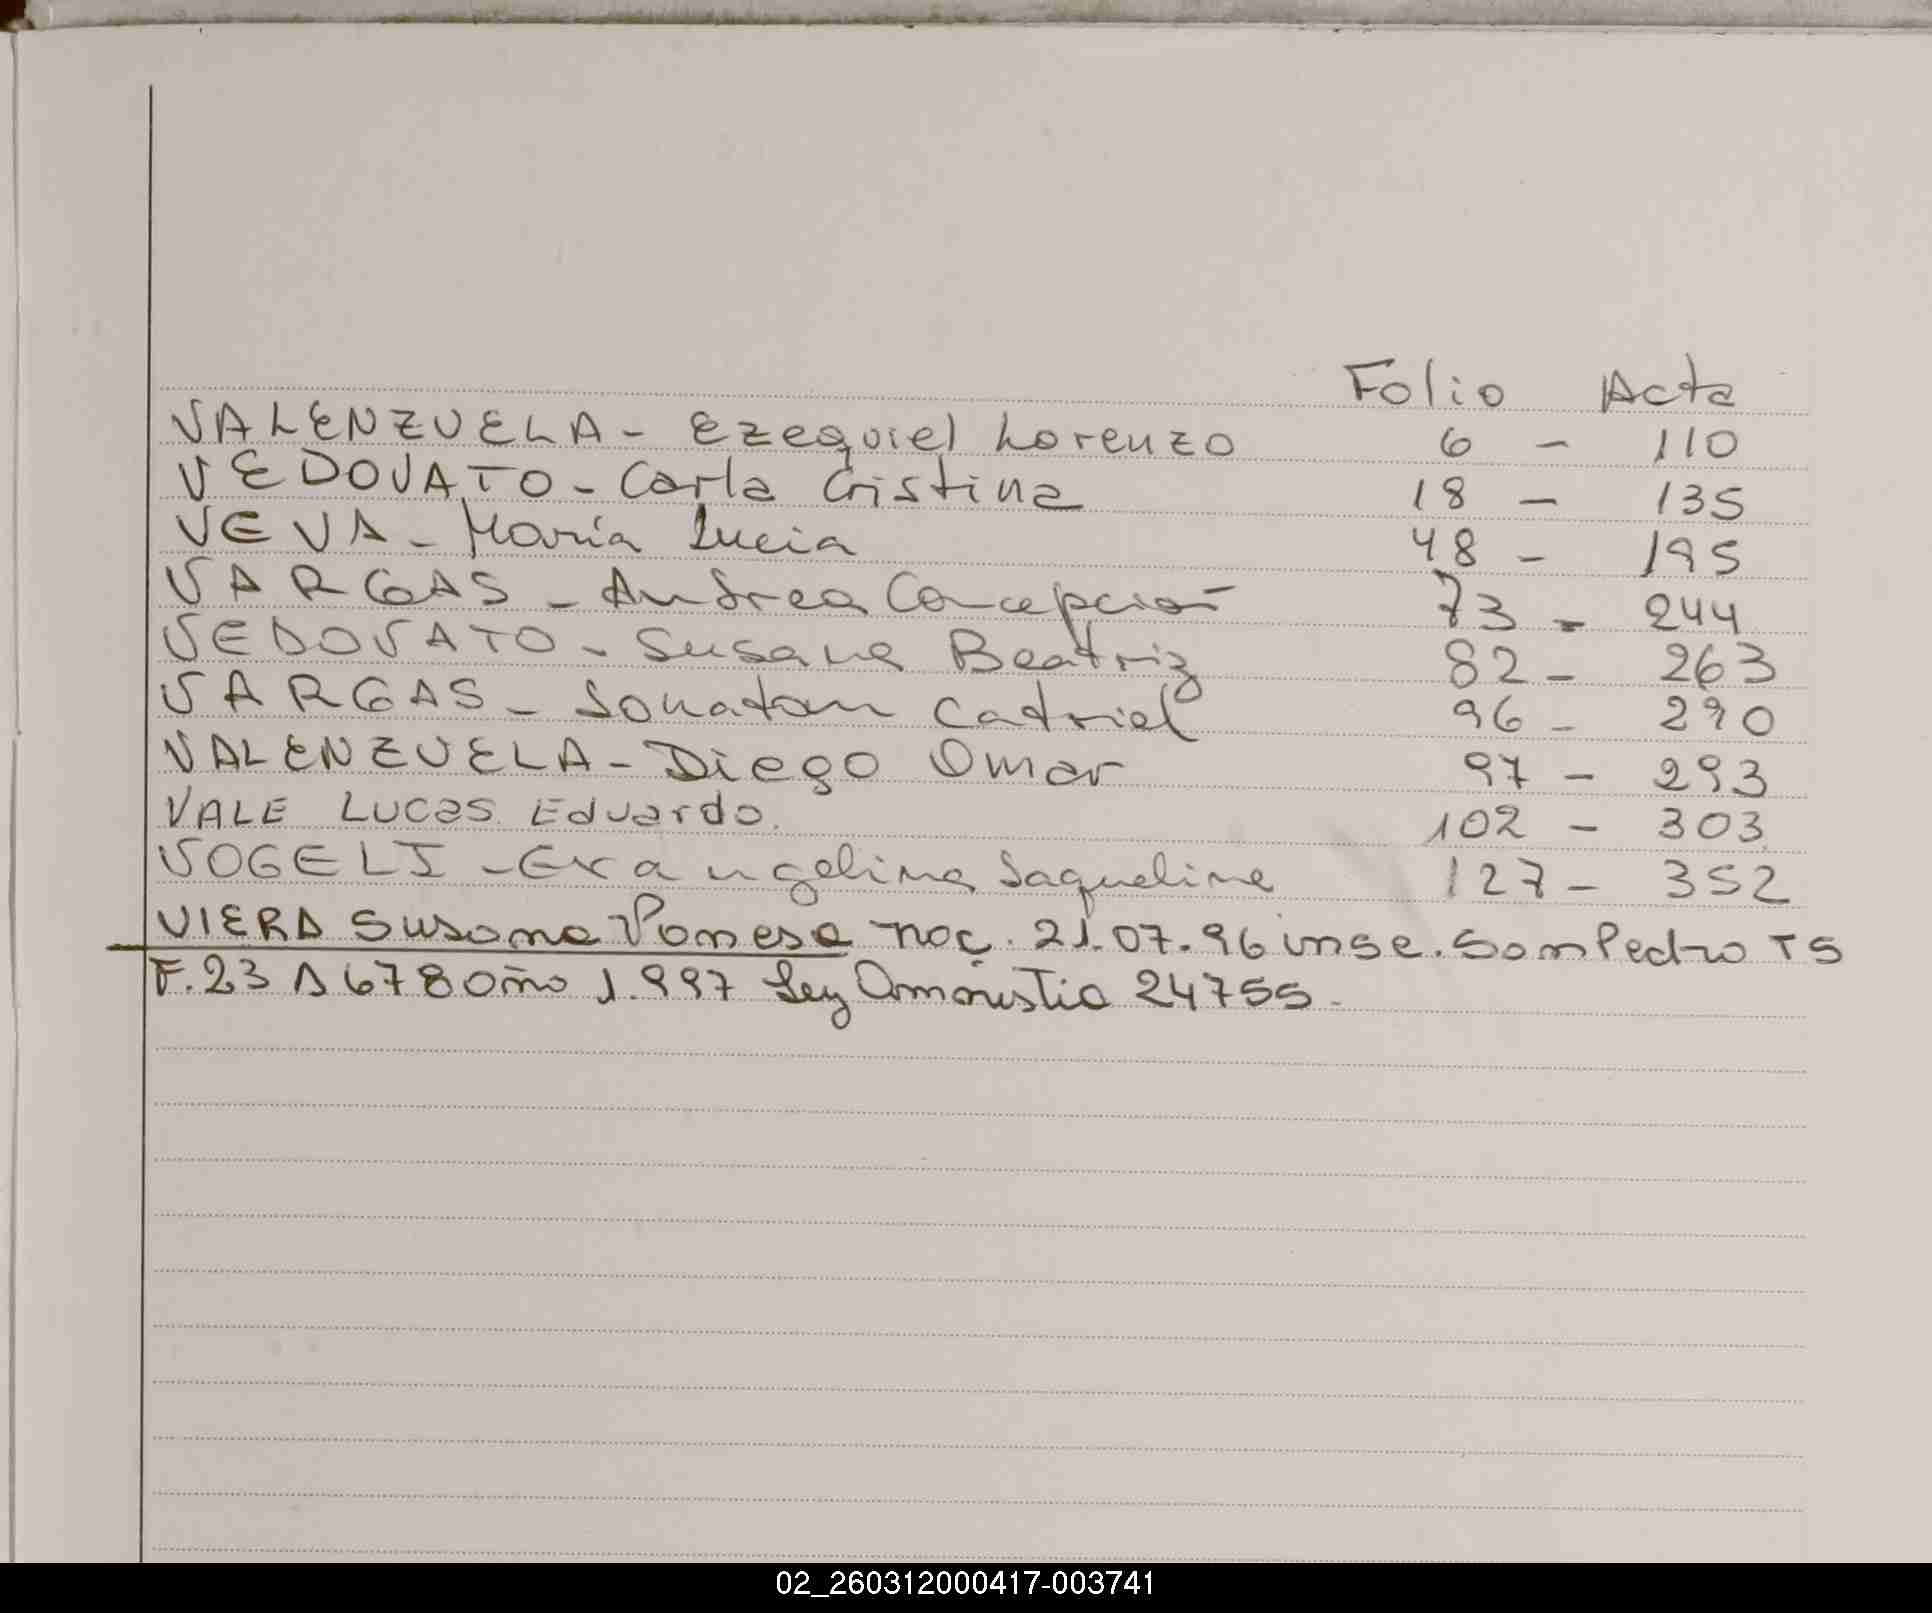 Folio Acta
VALENZUELA - Ezequiel Lorenzo 6 - 110
VEDOVATO - Carla Cristina 18 - 135
VEVA - María Lucia 48 - 195
VARGAS - Andrea Concepción 73 - 244
VEDOVATO - Susana Beatriz 82 - 263
VARGAS - Jonatan Catriel 96 - 290
VALENZUELA - Diego Omar 97 - 293
VALE Lucas Eduardo. 102 - 303
VOGELI - Evangelina Jaqueline 127 - 352
VIERA Susana Vanesa nac. 21.07.96 inse. San Pedro TS
F. 23 A 678 Año 1.997 Ley Amnistia 24755.
02_260312000417-003741